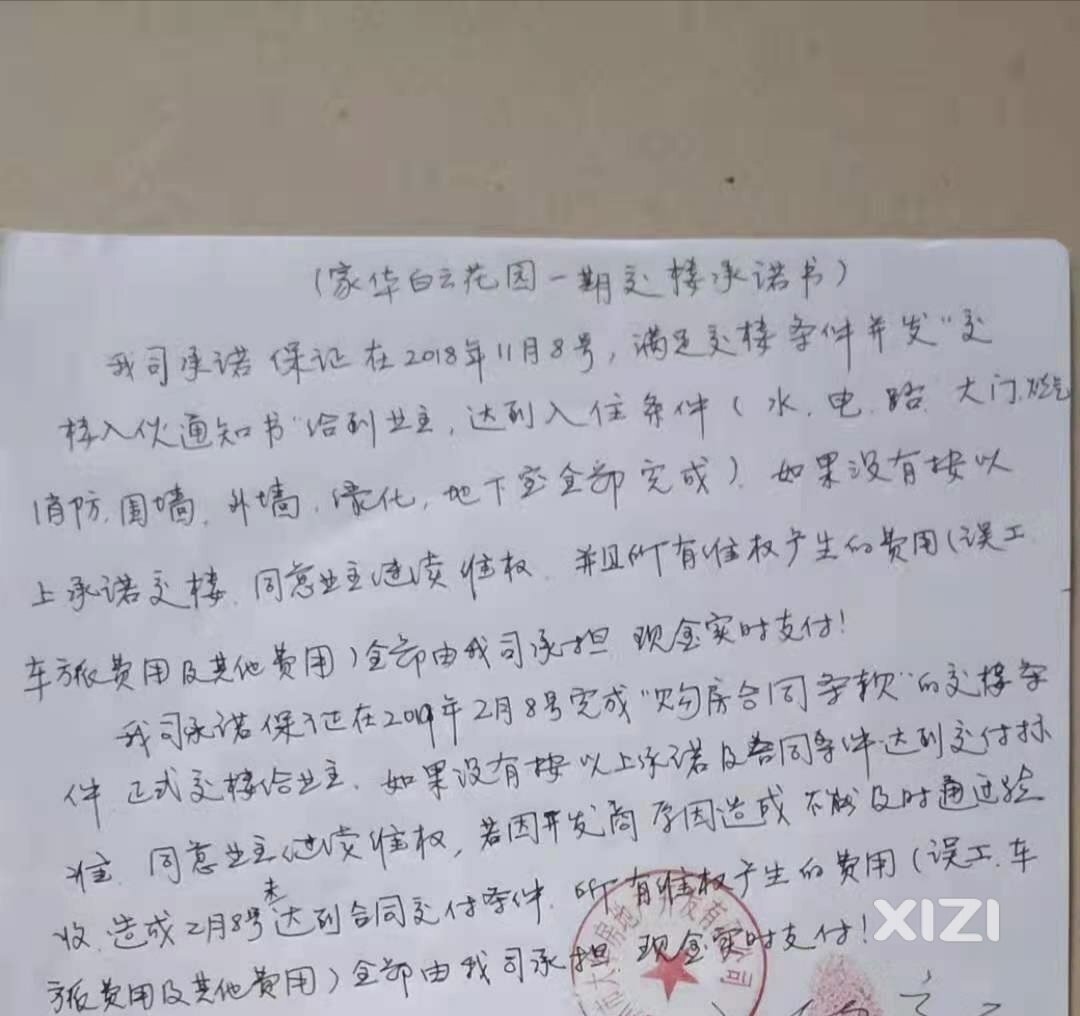 （家华白云花园一期交楼承诺书）
我司承诺保证在2018年11月8号，满足交楼条件并发"交
楼入伙通知书"给到业主，达到入住条件（水、电、路、大门、燃气
消防、围墙、外墙、绿化，地下室全部完成）、如果没有按以
上承诺交楼、同意业主继续维权、并且所有维权产生的费用（误工、
车旅费用及其他费用）全部由我司承担、现金实时支付！
我司承诺保证在2019年2月8号完成"购房合同条款"的交楼条
件、正式交楼给业主、如果没有按以上承诺及合同条件达到交付标
准、同意业主继续维权，若因开发商原因造成不能及时通过验
收、造成2月8号未达到合同交付条件、所有维权产生的费用（误工、车
旅费用及其他费用）全部由我司承担、现金实时支付！
房地产开发有限公司
XIZI